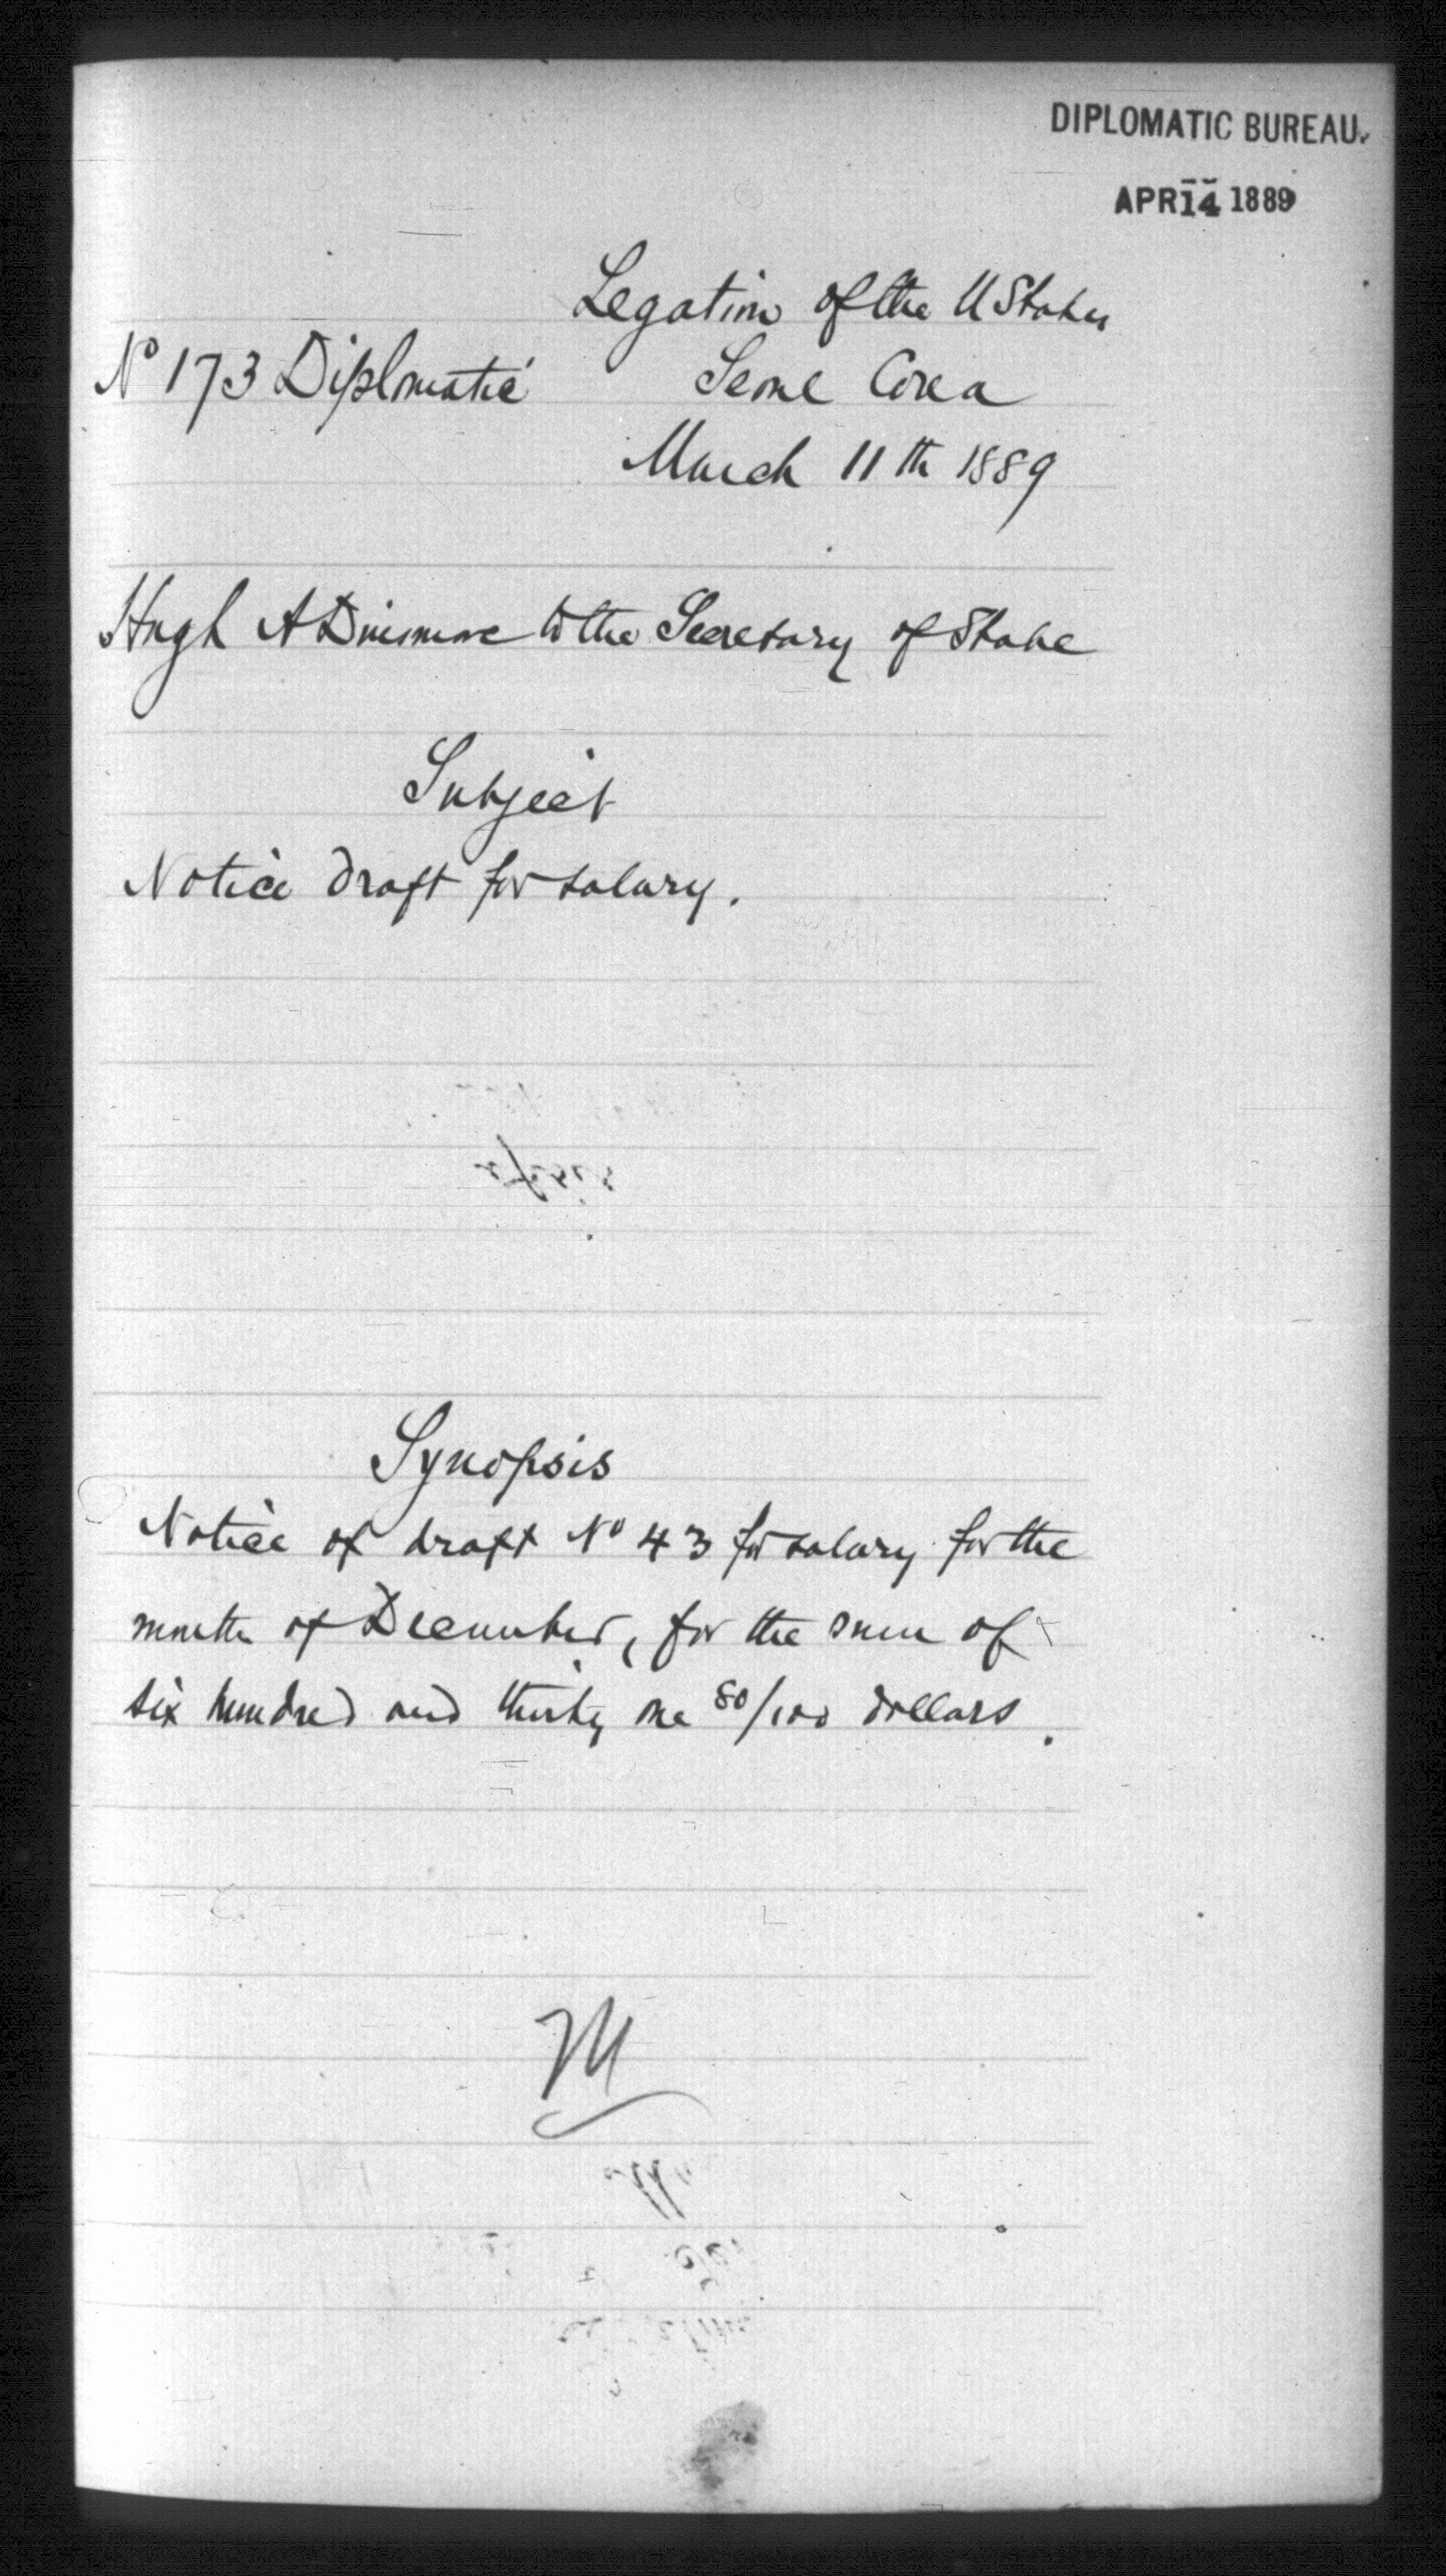 DIPLOMATIC BUREAU.
APR 14 1889
Legation of the U States
No 173 Diplomatic
Seoul Corea
March 11th 1889
Hugh A Dinsmore to the Secretary of State
Subject
Notice draft for salary.
Synopsis
Notice of draft No 43 for salary for the
month of December, for the sum of
six hundred and thirty one 80/100 dollars.
M